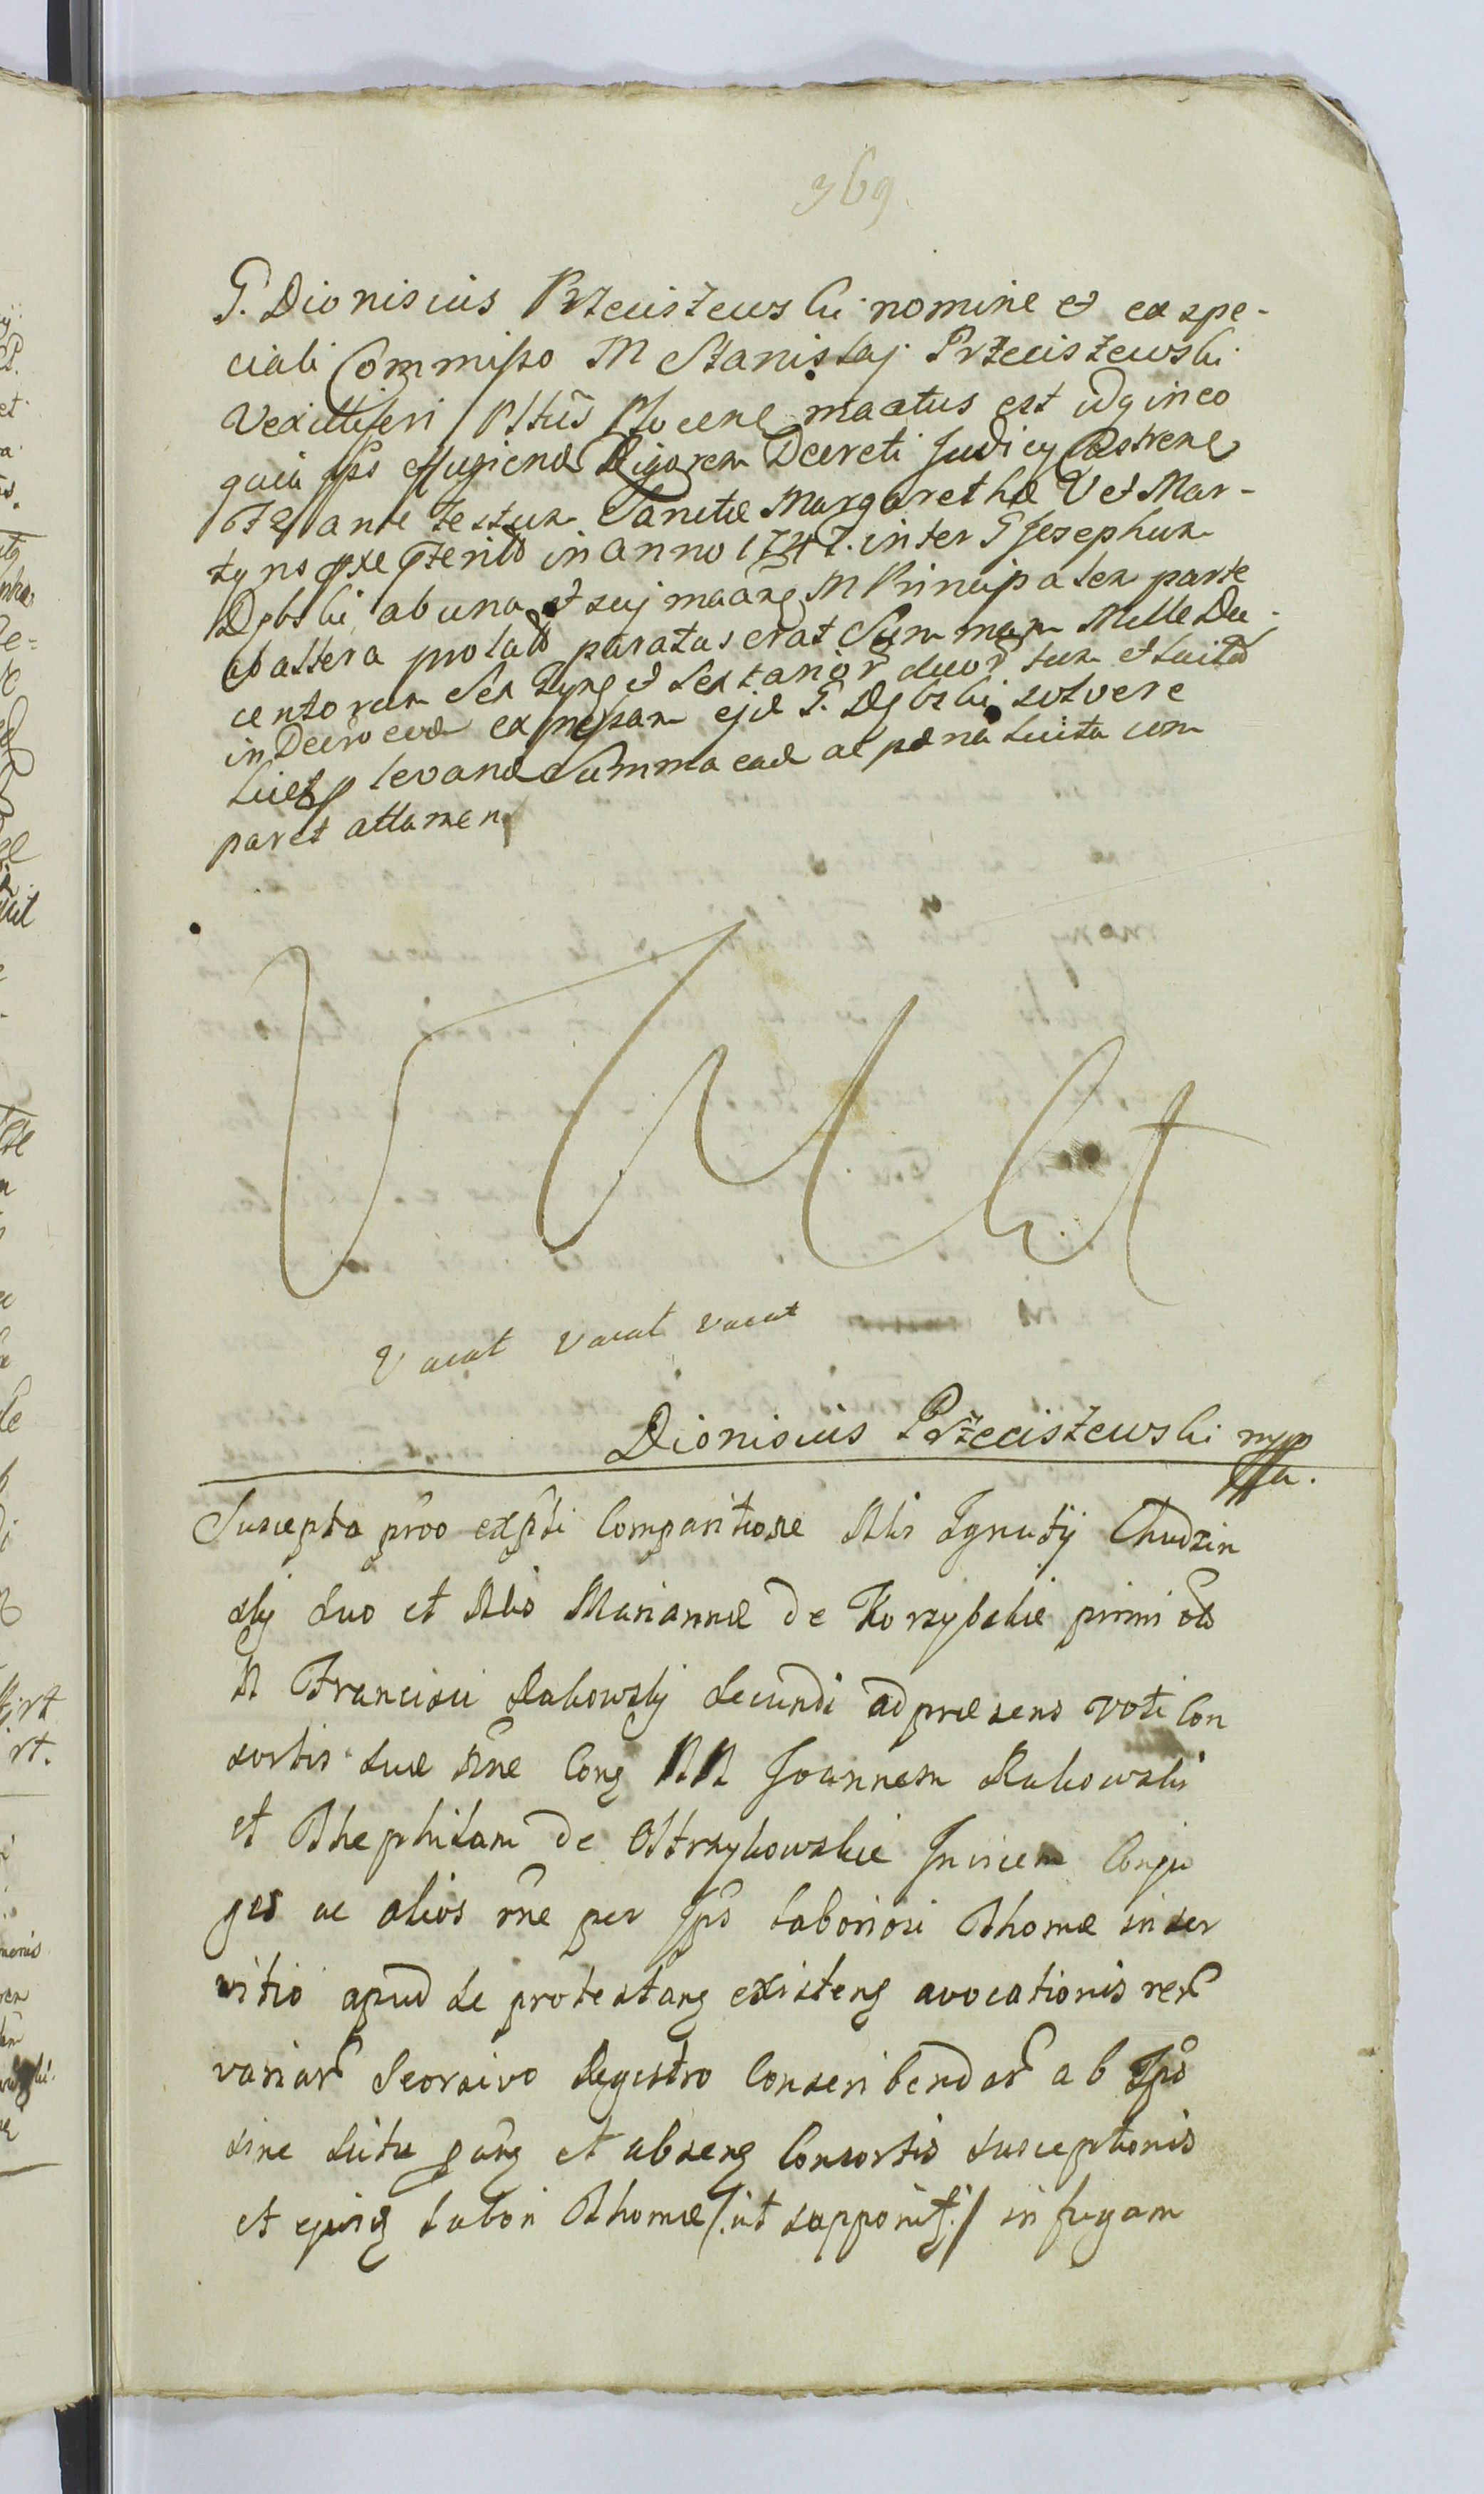 369
G. Dionisius Przeciszewski nomine et ex spe-
ciali Commisso M Stanislaj Przeciszewski
Vexilliferi Plocen mactus est idq in eo
quia Ipso effugiend Rigorem Decreti Judicy Castrens
ante festum Sanctæ Margarethæ V et Mar-
tyris in Anno 1747. inter G Josephum
Dębski ab una et suj M Principalem parte
ab altera prolati paratus erat Summam Mille Du-
centorum Sex et Sextarior duor tum et luita
in Decro eod expressam ejd G. Dębski solvere
levand Summa ead ac pæna luita com
paret attamen
Vacat
Vacat vacat vacat
Dionisius Przeciszewski mpp
Suscepta proo expti Comparitione Nlis Ignatij Chudzin
skj suo et Nlis Mariannæ de Korzybskie primi olo
N Francisci Rakowskj Secundi ad præsens voti Con
sortis suæ Cong NN Joannem Rakowski
et Thephilam de Ostrzykowskie Invicem Conju
ges ac alios rne per Ips laboriosi Thomæ in ser
vitio apud se protestang existeng avocationis rer
variar Seorsivo Regestro Conscribendar ab Ipso
sine scitu et abseng Consortis susceptionis
et ejusq labori Thomæ /: ut supponit :/ in fugam